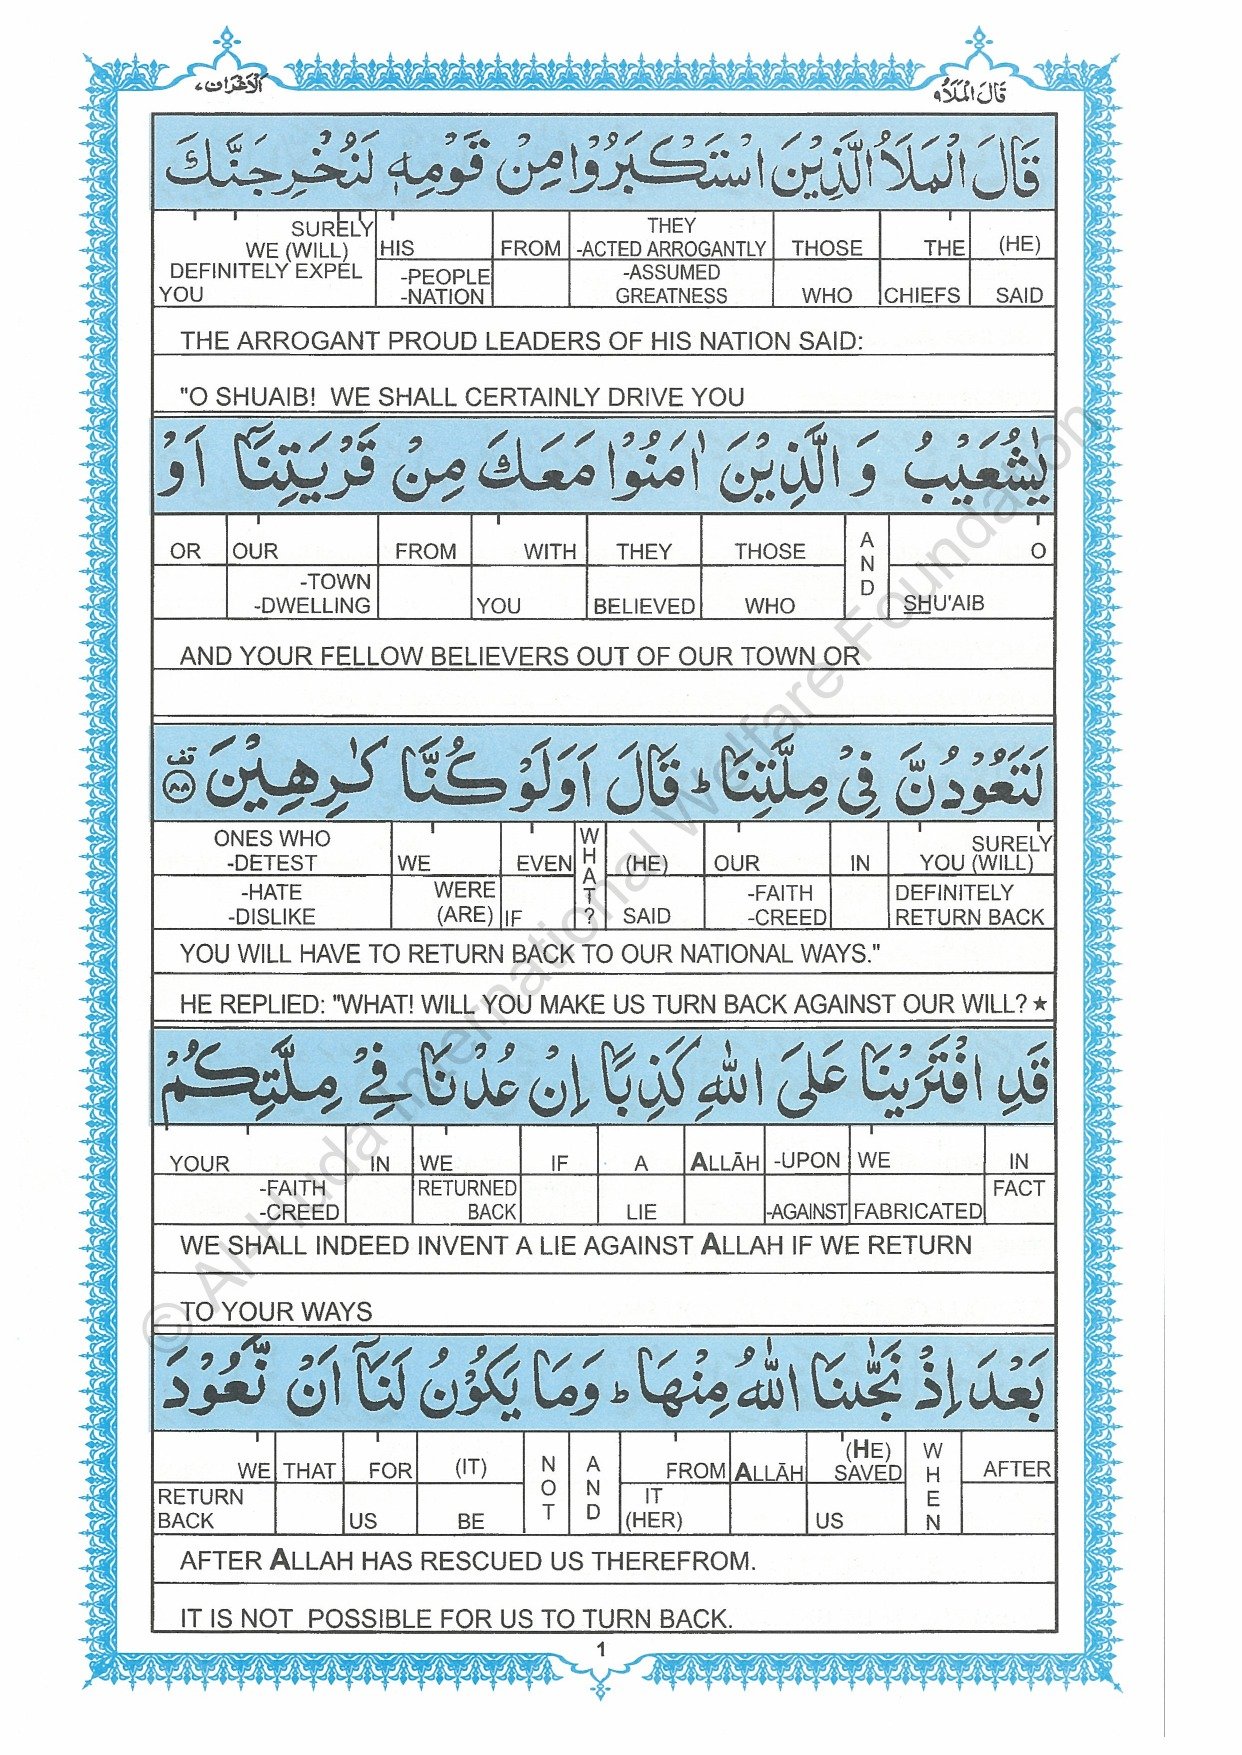 قَالَ الْمَلَاُ ٩
الْاَعْرَاف ٧
قَالَ الْمَلَاُ الَّذِيْنَ اسْتَكْبَرُوْا مِنْ قَوْمِهٖ لَنُخْرِجَنَّكَ
SURELY WE (WILL) DEFINITELY EXPEL YOU | HIS -PEOPLE -NATION | FROM | THEY -ACTED ARROGANTLY -ASSUMED GREATNESS | THOSE WHO | THE CHIEFS | (HE) SAID
THE ARROGANT PROUD LEADERS OF HIS NATION SAID:
"O SHUAIB! WE SHALL CERTAINLY DRIVE YOU
يٰشُعَيْبُ وَالَّذِيْنَ اٰمَنُوْا مَعَكَ مِنْ قَرْيَتِنَاۤ اَوْ
OR | OUR -TOWN -DWELLING | FROM | WITH YOU | THEY BELIEVED | THOSE WHO | AND | O SHU'AIB
AND YOUR FELLOW BELIEVERS OUT OF OUR TOWN OR
لَتَعُوْدُنَّ فِيْ مِلَّتِنَا ؕ قَالَ اَوَلَوْ كُنَّا كٰرِهِيْنَ ۟قف ٨٨
ONES WHO -DETEST -HATE -DISLIKE | WE WERE (ARE) | EVEN IF | WHAT? | (HE) SAID | OUR -FAITH -CREED | IN | SURELY YOU (WILL) DEFINITELY RETURN BACK
YOU WILL HAVE TO RETURN BACK TO OUR NATIONAL WAYS."
HE REPLIED: "WHAT! WILL YOU MAKE US TURN BACK AGAINST OUR WILL? ★
قَدِ افْتَرَيْنَا عَلَى اللّٰهِ كَذِبًا اِنْ عُدْنَا فِيْ مِلَّتِكُمْ
YOUR -FAITH -CREED | IN | WE RETURNED BACK | IF | A LIE | ALLĀH | -UPON -AGAINST | WE FABRICATED | IN FACT
WE SHALL INDEED INVENT A LIE AGAINST ALLAH IF WE RETURN
TO YOUR WAYS
بَعْدَ اِذْ نَجّٰىنَا اللّٰهُ مِنْهَا ؕ وَمَا يَكُوْنُ لَنَاۤ اَنْ نَّعُوْدَ
WE RETURN BACK | THAT | FOR US | (IT) BE | NOT | AND | FROM IT (HER) | ALLĀH | (HE) SAVED US | WHEN | AFTER
AFTER ALLAH HAS RESCUED US THEREFROM.
IT IS NOT POSSIBLE FOR US TO TURN BACK.
1
© Al-Huda International Welfare Foundation